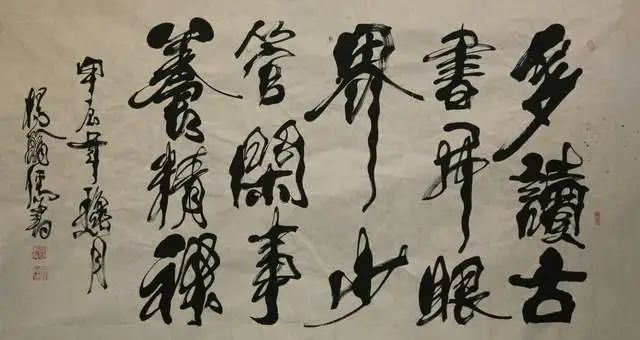 多讀古
書開眼
界少
管閑事
養精神
甲辰年臘月
楊書